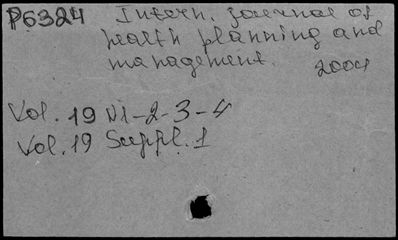 P6324 Intern. journal of
health planning and
management. 2004
Vol. 19 N1-2-3-4
Vol. 19 Suppl. 1